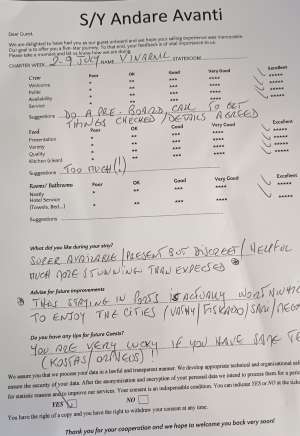 S/Y Andare Avanti
Dear Guest,
We are delighted to have had you as our guest onboard and we hope your sailing experience was memorable.
Our goal is to offer you a five-star journey. To that end, your feedback is of vital importance to us.
Please take a moment and let us know how we are doing.
CHARTER WEEK: 2-9 JULY NAME STATEROOM:
Crew Poor OK Good Very Good Excellent
Welcome * ** *** **** *****
Polite * ** *** **** *****
Availability * ** *** **** *****
Service * ** *** **** *****
Suggestions DO A PRE-BOARD CALL TO GET
THINGS CHECKED / DETAILS AGREED
Food Poor OK Good Very Good Excellent
Presentation * ** *** **** *****
Variety * ** *** **** *****
Quality * ** *** **** *****
Kitchen * ** *** **** *****
Suggestions TOO MUCH (!)
Rooms/ Bathrooms Poor OK Good Very Good Excellent
Neatly * ** *** **** *****
Hotel Service * ** *** **** *****
(Towels, Bed...)
Suggestions
What did you like during your stay?
SUPER AVAILABLE / PRESENT BUT DISCREET / HELPFUL
MUCH MORE STUNNING THAN EXPECTED
Advise for future improvements
STAYING IN PORTS IS ACTUALLY WORTHWHILE
TO ENJOY THE CITIES (VATHY / FISKARDO /
Do you have any tips for future Guests?
YOU ARE VERY LUCKY IF YOU HAVE SAME
(KOSTAS /
We assure you that we process your data in a lawful and transparent manner. We develop appropriate technical and organisational
ensure the security of your data. After the anonymization and encryption of your personal data we intend to process them for a
for statistic reasons and to improve our services. Your consent is an indispensable condition. You can indicate YES or NO at the
YES NO
You have the right of a copy and you have the right to withdraw your consent at any time.
Thank you for your cooperation and we hope to welcome you back very soon!